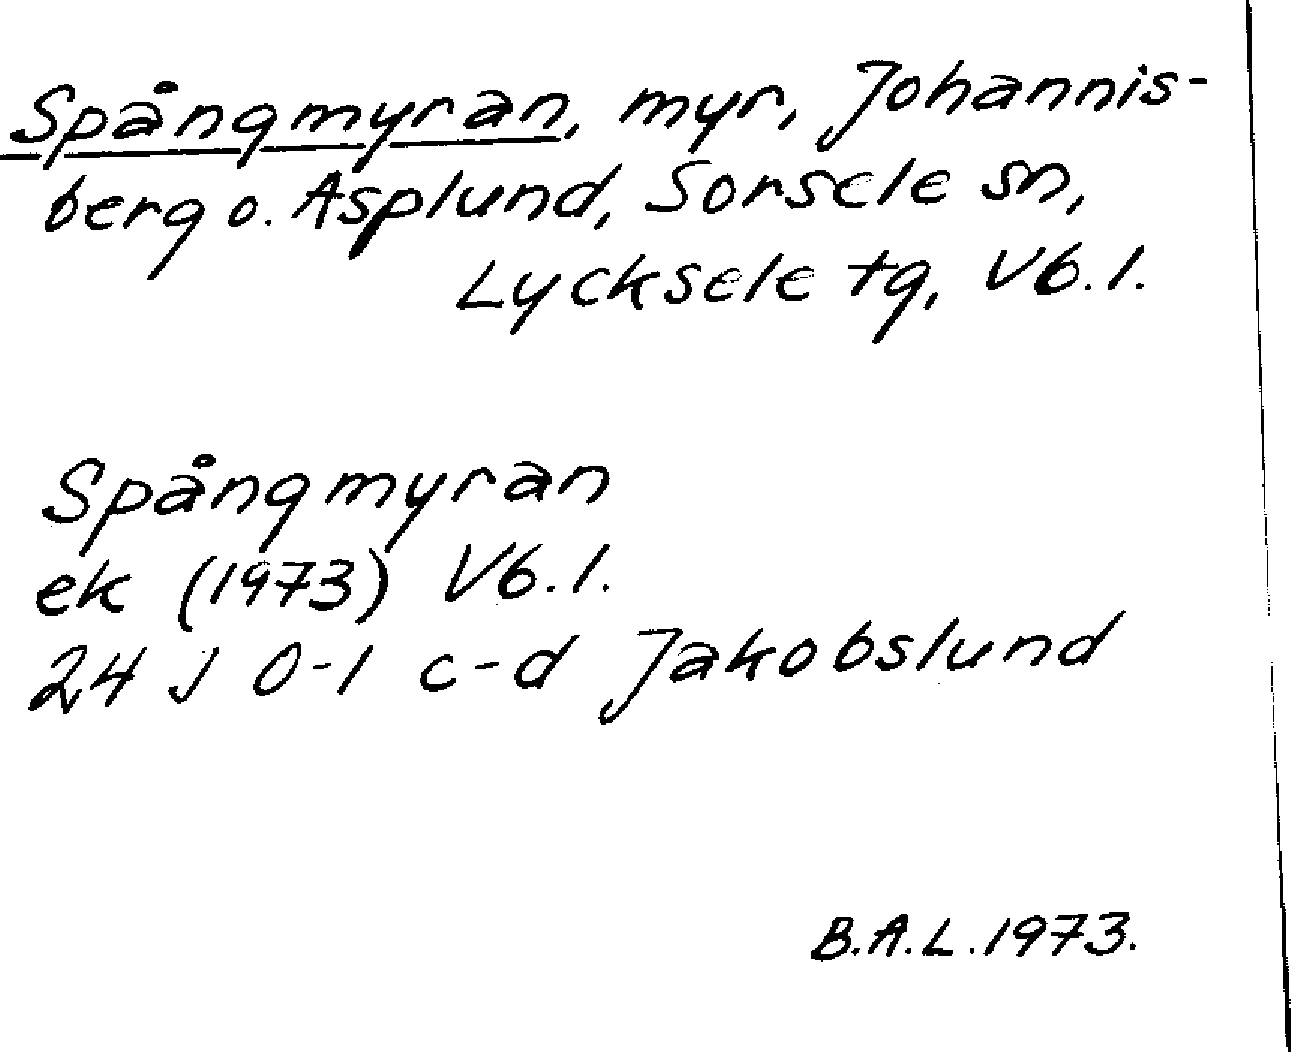 Spångmyran, myr, Johannis-
berg o. Asplund, Sorsele sn,
Lycksele tg, Vb. l.
Spångmyran
ek (1973) Vb. l.
24 J 0-1 c-d Jakobslund
B.A.L. 1973.